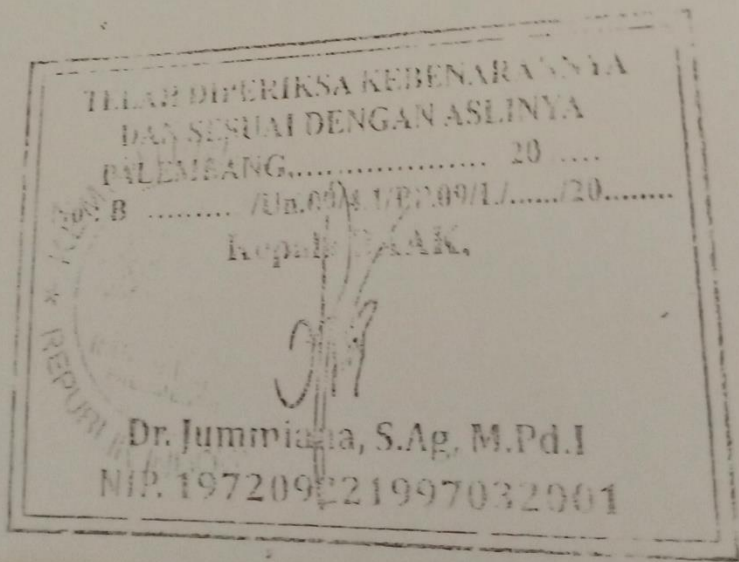 TELAH DIPERIKSA KEBENARANNYA
DAN SESUAI DENGAN ASLINYA
PALEMBANG,................... 20 ....
B ......... /Un.09/ /PP.09/1./....../20........
Kepala BAAK,
REPUBLIK
Dr. Jummiana, S.Ag, M.Pd.I
NIP. 197209221997032001